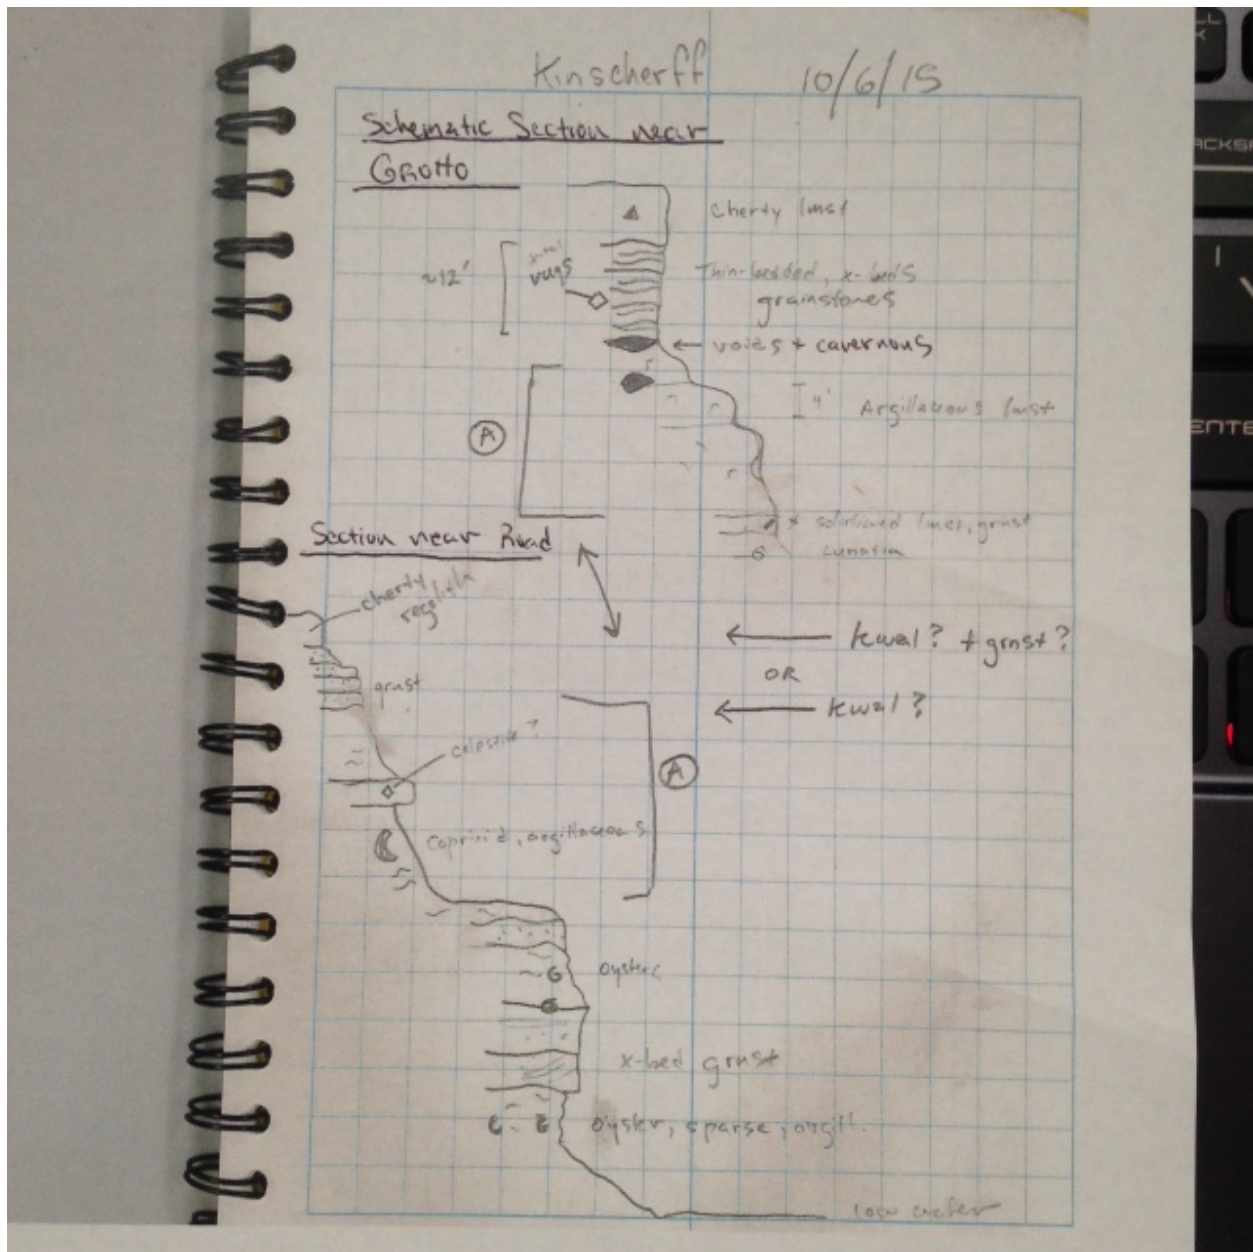 Kinscherff 10/6/15
Schematic Section near
Grotto
cherty lmst
~12'
vugs
Thin-bedded, x-beds
grainstones
voids + cavernous
4' Argillaceous lmst
A
solutioned lmst, grnst
Lunatia
Section near Road
cherty
regolith
kwal? + grnst?
OR
kwal?
grnst
celestite?
A
Caprinid, argillaceous
oysters
x-bed grnst
oyster, sparse, argill.
low water
ENTE